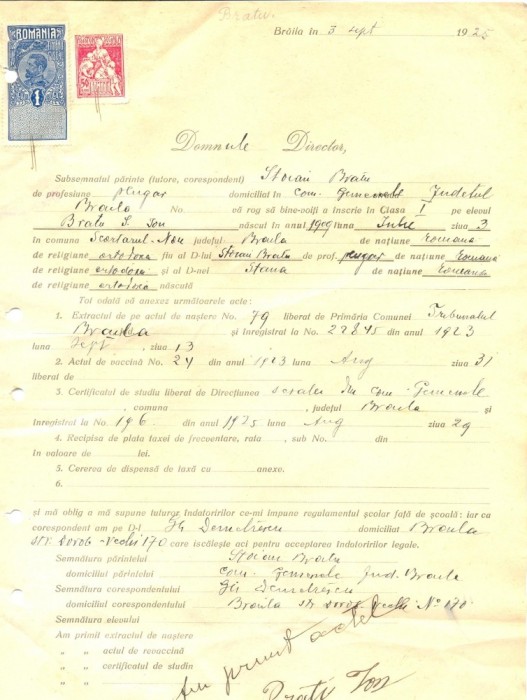 Bratu.
Brăila în 3 sept 1925
ROMANIA
1
Domnule Director,
Subsemnatul părinte (tutore, corespondent) Stoian Bratu
de profesiune plugar domiciliat în com. Gemenele Judetul
Braila No să rog să bine-voiți a înscrie în Clasa I pe elevul
Bratu S. Ion născut în anul 1909 luna Iulie ziua 3
în comuna Scortarul-Nou județul Braila de națiune romana
de religiune ortodoxa fiu al D-lui Stoian Bratu de prof. plugar de națiune romană
de religiune ortodoxa și al D-nei Stana de națiune romana
de religiune ortodoxă născută
Tot odată să anexez următoarele acte:
1. Extractul de pe actul de naștere No. 79 liberat de Primăria Comunei Tribunalul
Braila și înregistrat la No. 22845 din anul 1923
luna Sept, ziua 13
2. Actul de vaccină No. 24 din anul 1923 luna Aug ziua 31
liberat de
3. Certificatul de studiu liberat de Direcțiunea scoalei din com. Gemenele
, comuna , județul Braila și
înregistrat la No. 196 din anul 1925 luna Aug ziua 29
4. Recipisa de plata taxei de frecuentare, rata , sub No. din
în valoare de lei.
5. Cererea de dispensă de taxă cu anexe.
6.
și mă oblig a mă supune tuturor îndatoririlor ce-mi impune regulamentul școlar față de școală: iar ca
corespondent am pe D-l Gh Demetrescu domiciliat Braila
str. Dorob-Vechi 170 care iscălește aci pentru acceptarea îndatoririlor legale.
Semnătura părintelui Stoian Bratu
domiciliul părintelui com. Gemenele Jud. Braila
Semnătura corespondentului Gh Demetrescu
domiciliul corespondentului Braila str Dorob Vechi No 170
Semnătura elevului
Am primit extractul de naștere
„ „ actul de revaccină
„ „ certificatul de studiu
„ „
Am primit actele
Bratu Ion